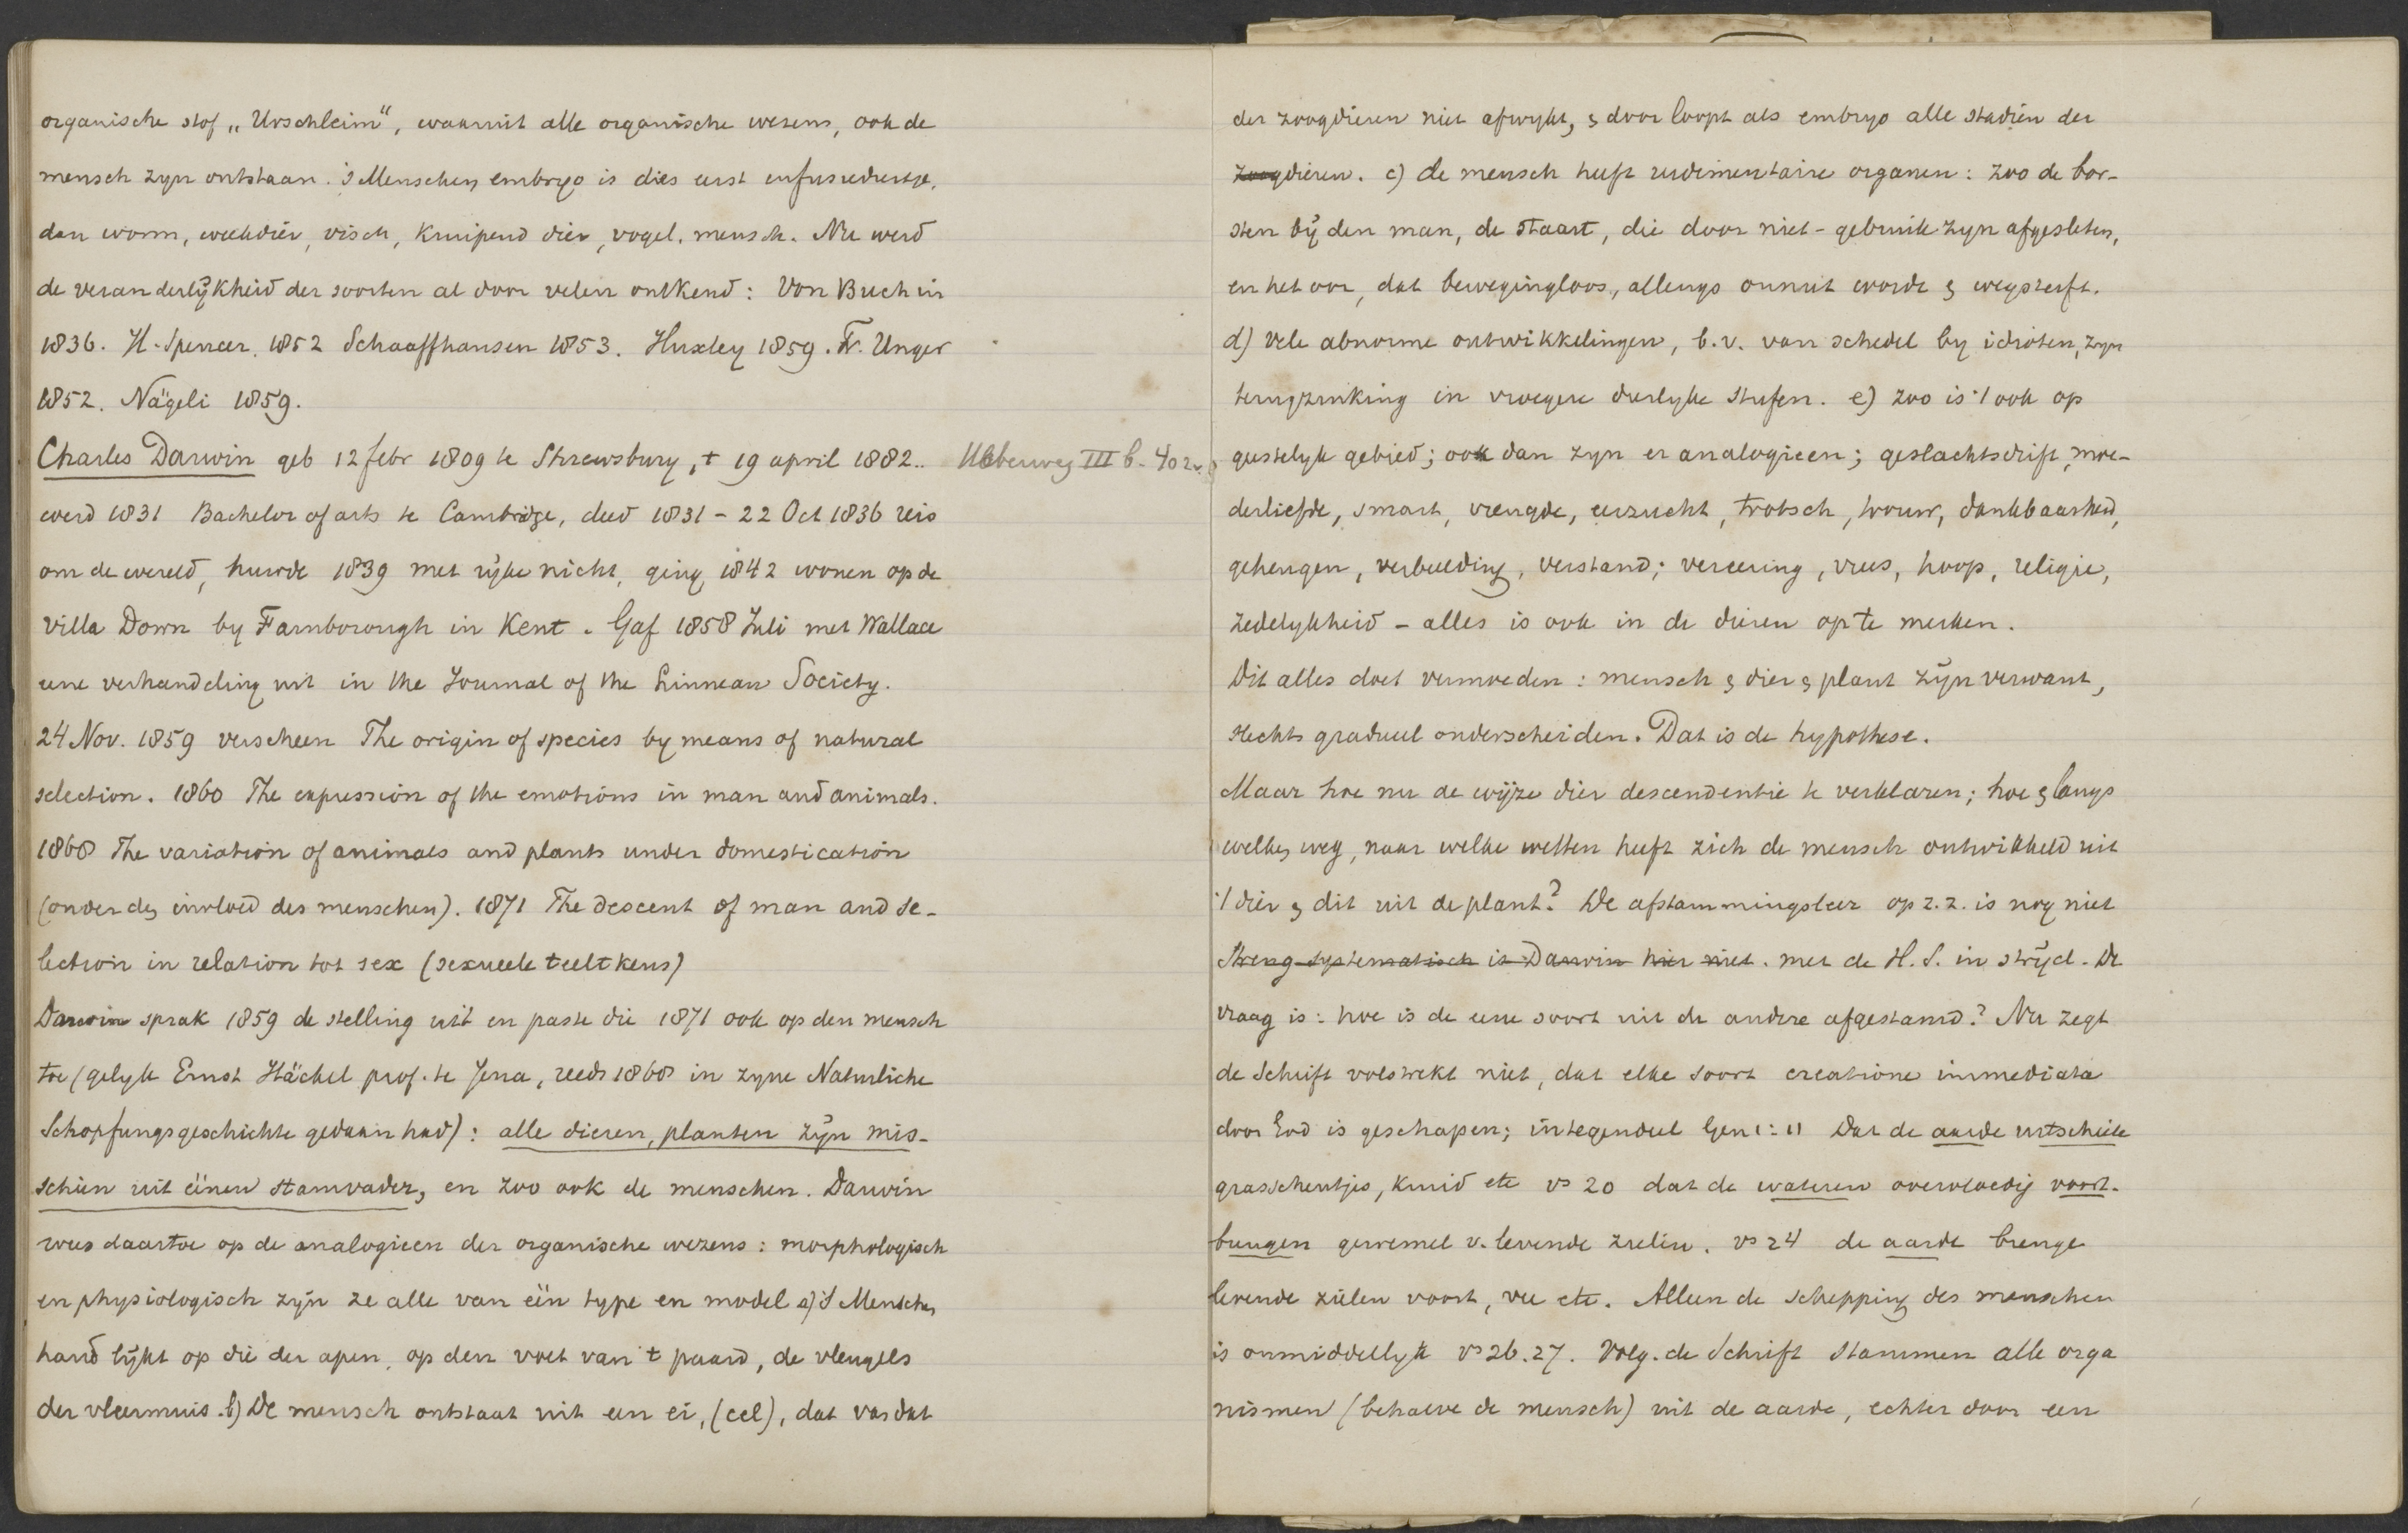 organische stof „Urschleim", waaruit alle organische wezens, ook de
mensch zyn ontstaan. 's Menschen embryo is dies eerst infusiediertje,
dan worm, weekdier, visch, kruipend dier, vogel, mensch. Nu werd
de veranderlijkheid der soorten al door velen ontkend: Von Buch in
1836. H. Spencer. 1852 Schaaffhausen 1853. Huxley 1859. Fr. Unger
1852. Nägeli 1859.
Charles Darwin geb 12 febr 1809 te Shrewsbury, † 19 april 1882.. Ueberweg III b. 402.
werd 1831 Bachelor of arts te Cambridge, deed 1831 - 22 Oct 1836 reis
om de wereld, huwde 1839 met rijke nicht, ging 1842 wonen op de
villa Down by Farnborough in Kent. Gaf 1858 Juli met Wallace
eene verhandeling uit in the Journal of the Linnean Society.
24 Nov. 1859 verscheen The origin of species by means of natural
selection. 1860 The expression of the emotions in man and animals.
1868 The variation of animals and plants under domestication
(onder den invloed des menschen). 1871 The descent of man and se-
lection in relation tot sex (sexueele teeltkeus)
Darwin sprak 1859 de stelling uit en paste die 1871 ook op den mensch
toe (gelyk Ernst Häckel prof. te Jena, reeds 1868 in zyne Naturliche
Schopfungsgeschichte gedaan had): alle dieren, planten zijn mis-
schien uit éénen stamvader, en zoo ook de menschen. Darwin
wees daartoe op de analogieen der organische wezens: morphologisch
en physiologisch zijn ze alle van één type en model a) 's Menschen
hand lijkt op die der apen, op den voet van 't paard, de vleugels
der vleermuis. b) De mensch ontstaat uit een ei, (cel), dat van dat
der zoogdieren niet afwykt, & door loopt als embryo alle stadien der
zoogdieren. c) de mensch heeft rudimentaire organen: zoo de bor-
sten bij den man, de staart, die door niet-gebruik zyn afgesleten,
en het oor, dat bewegingloos, allengs onnut wordt & wegsterft.
d) Vele abnorme ontwikkelingen, b.v. van schedel by idioten, zyn
terugzinking in vroegere dierlyke stufen. e) zoo is 't ook op
geestelyk gebied; ook dan zyn er analogieen; geslachtsdrift, moe-
derliefde, smart, vreugde, eerzucht, trotsch, trouw, dankbaarheid,
geheugen, verbeelding, verstand; vereering, vrees, hoop, religie,
zedelykheid - alles is ook in de dieren op te merken.
Dit alles doet vermoeden: mensch & dier & plant zijn verwant,
slechts gradueel onderscheiden. Dat is de hypothese.
Maar hoe nu de wijze dier descendentie te verklaren; hoe & langs
welken weg, naar welke wetten heeft zich de mensch ontwikkeld uit
't dier & dit uit de plant? De afstammingsleer op z.z. is nog niet
Streng systematisch is Darwin hier niet. met de H.S. in strijd. De
vraag is: hoe is de eene soort uit de andere afgestamd? Nu zegt
de Schrift volstrekt niet, dat elke soort creatione immediata
door God is geschapen; integendeel Gen 1:11 Dat de aarde uitschiete
grasscheutjes, kruid etc vs 20 dat de wateren overvloedig voort-
brengen gewemel v. levende zielen. vs 24 de aarde brenge
levende zielen voort, vee etc. Alleen de schepping des menschen
is onmiddellyk vs 26.27. Volg. de Schrift stammen alle orga
nismen (behalve de mensch) uit de aarde, echter door een